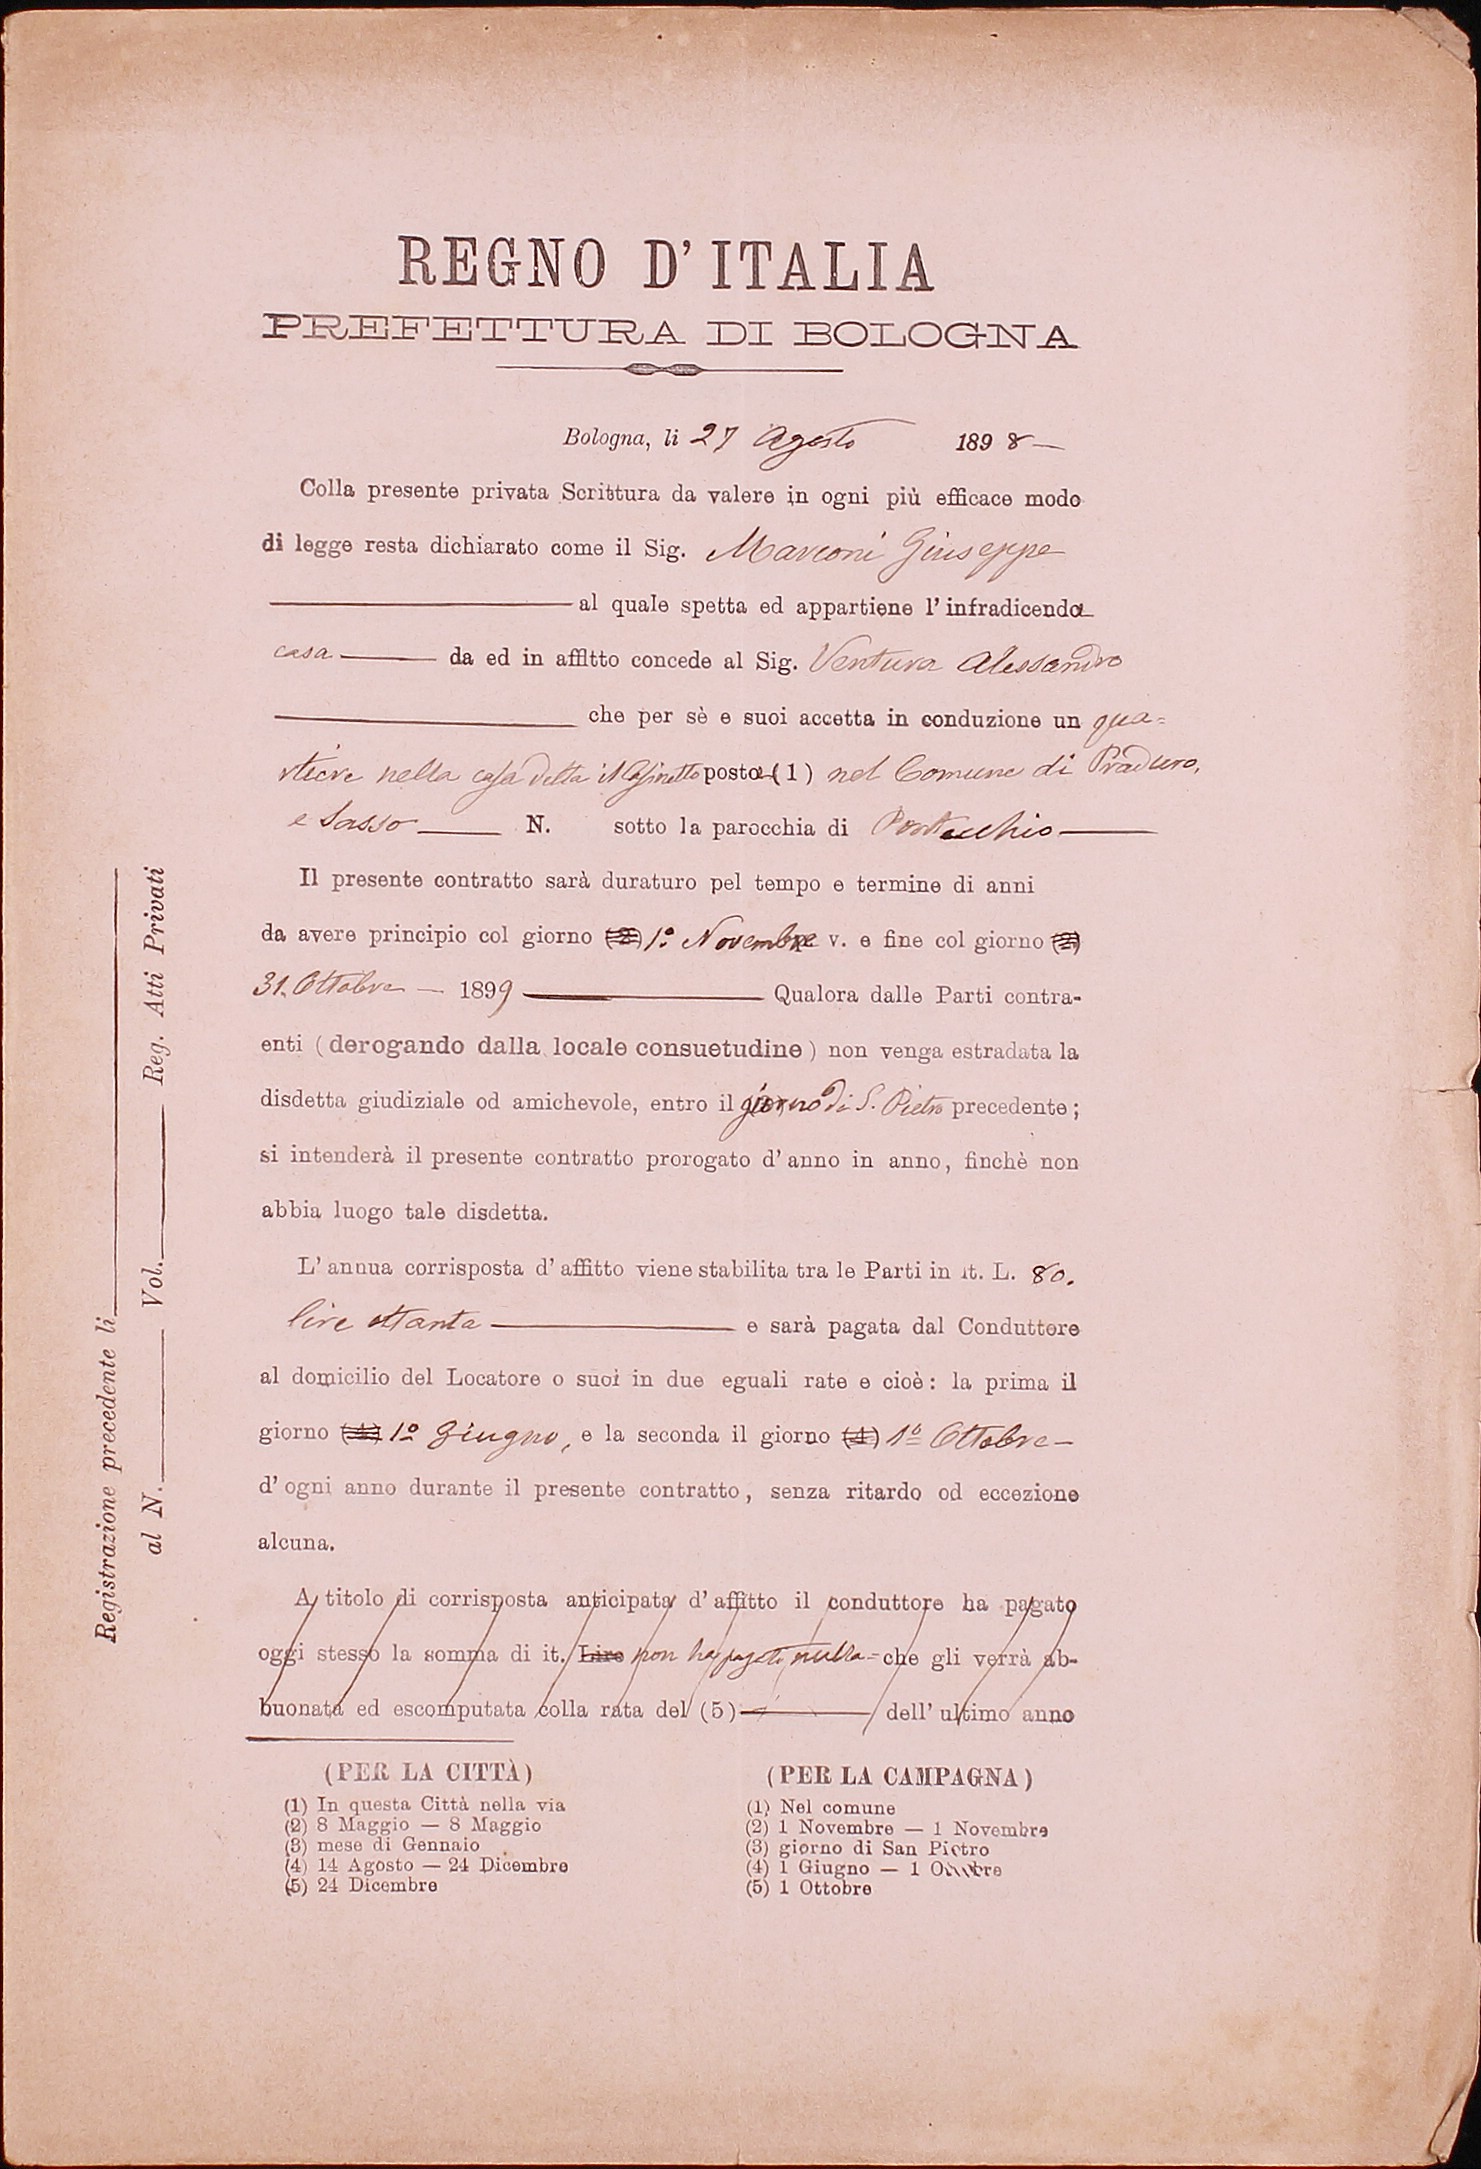 REGNO D'ITALIA
PREFETTURA DI BOLOGNA
Bologna, li 27 Agosto 1898
Colla presente privata Scrittura da valere in ogni più efficace modo
di legge resta dichiarato come il Sig. Marconi Giuseppe
al quale spetta ed appartiene l'infradicenda
casa da ed in affitto concede al Sig. Ventura Alessandro
che per sè e suoi accetta in conduzione un qua=
rtiere nella casa detta il Casinetto posta (1) nel Comune di Praduro,
e Sasso N. sotto la parocchia di Pontecchio
Il presente contratto sarà duraturo pel tempo e termine di anni
da avere principio col giorno (2) 1º Novembre v. e fine col giorno (2)
31. Ottobre 1899 Qualora dalle Parti contra-
enti (derogando dalla locale consuetudine) non venga estradata la
disdetta giudiziale od amichevole, entro il giorno di S. Pietro precedente;
si intenderà il presente contratto prorogato d'anno in anno, finchè non
abbia luogo tale disdetta.
L'annua corrisposta d'affitto viene stabilita tra le Parti in it. L. 80.
lire ottanta e sarà pagata dal Conduttore
al domicilio del Locatore o suoi in due eguali rate e cioè: la prima il
giorno (4) 1º Giugno, e la seconda il giorno (4) 1º Ottobre
d'ogni anno durante il presente contratto, senza ritardo od eccezione
alcuna.
A titolo di corrisposta anticipata d'affitto il conduttore ha pagato
oggi stesso la somma di it. Lire non ha pagato nulla = che gli verrà ab-
buonata ed escomputata colla rata del (5) dell'ultimo anno
(PER LA CITTÀ)
(1) In questa Città nella via
(2) 8 Maggio — 8 Maggio
(3) mese di Gennaio
(4) 14 Agosto — 24 Dicembre
(5) 24 Dicembre
(PER LA CAMPAGNA)
(1) Nel comune
(2) 1 Novembre — 1 Novembre
(3) giorno di San Pietro
(4) 1 Giugno — 1 Ottobre
(5) 1 Ottobre
Registrazione precedente li
al N. Vol. Reg. Atti Privati